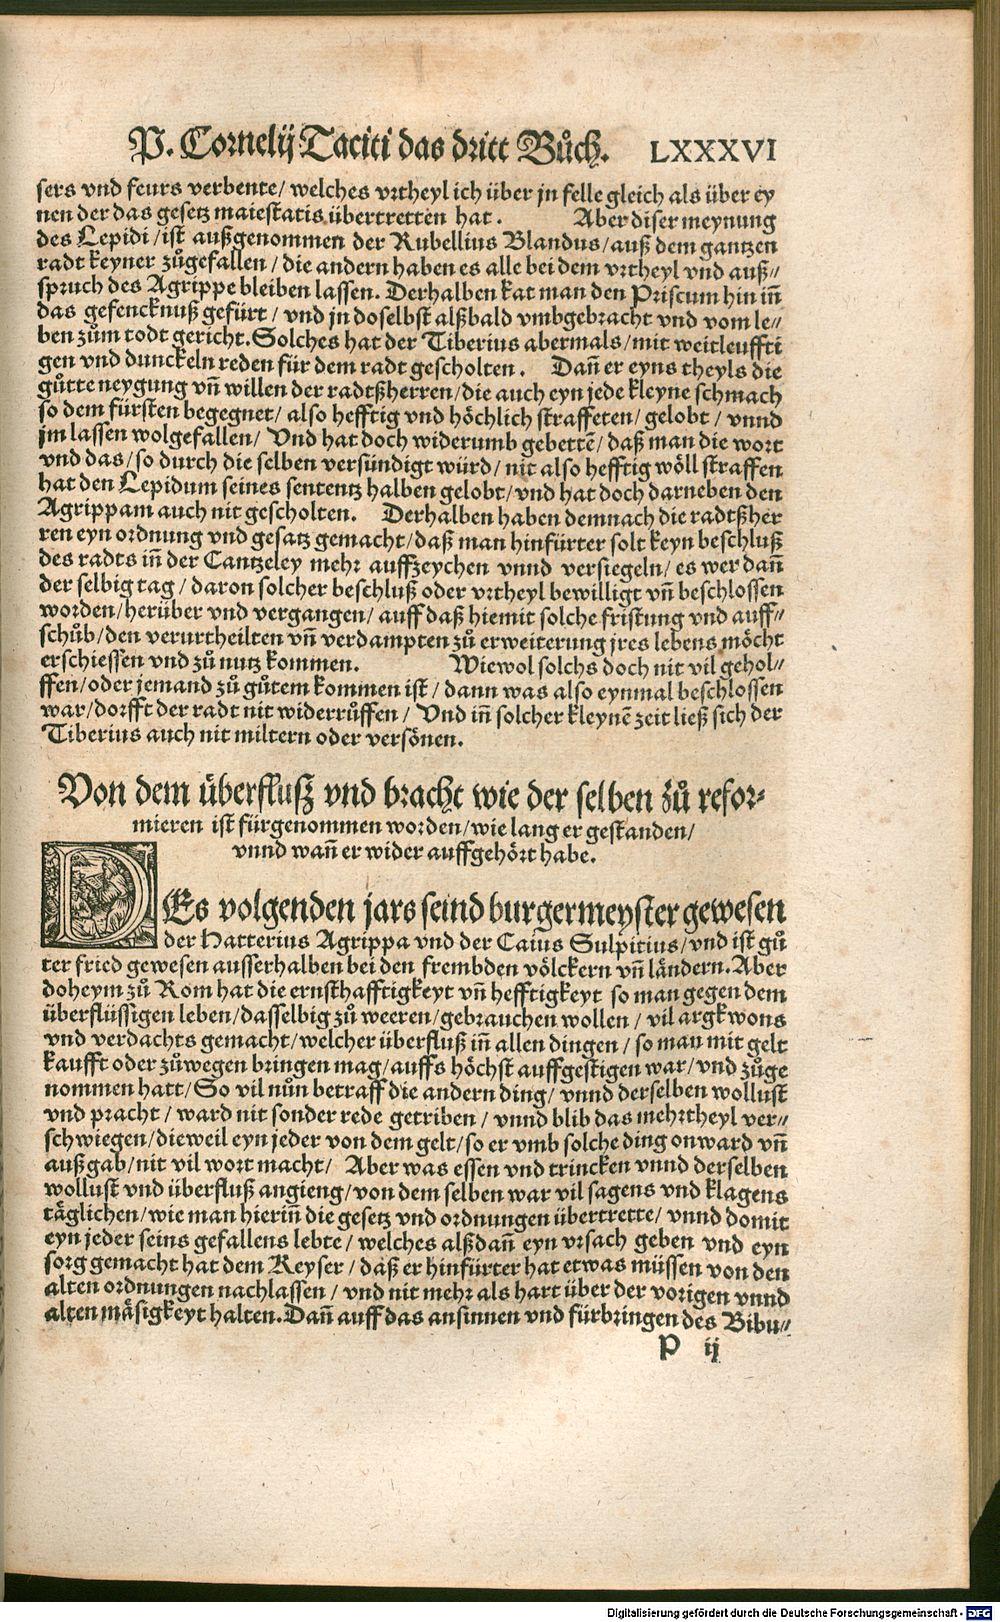 P. Cornelij Taciti das dritt Bůch. LXXXVI
sers vnd feurs verbente/ welches vrtheyl ich über jn felle gleich als über ey
nen der das gesetz maiestatis übertretten hat. Aber diser meynung
des Lepidi/ist außgenommen der Rubellius Blandus/auß dem gantzen
radt keyner zůgefallen/ die andern haben es alle bei dem vrtheyl vnd auß⸗
spruch des Agrippe bleiben lassen. Derhalben kat man den Priscum hin iñ
das gefencknuß gefürt/ vnd jn doselbst alßbald vmbgebracht vnd vom le⸗
ben zům todt gericht. Solches hat der Tiberius abermals/mit weitleuffti
gen vnd dunckeln reden für dem radt gescholten. Dañ er eyns theyls die
gůtte neygung vñ willen der radtßherren/die auch eyn jede kleyne schmach
so dem fürsten begegnet/ also hefftig vnd höchlich straffeten/ gelobt/ vnnd
jm lassen wolgefallen/ Vnd hat doch widerumb gebettē/ daß man die wort
vnd das/so durch die selben versündigt würd/ nit also hefftig wöll straffen
hat den Lepidum seines sententz halben gelobt/vnd hat doch darneben den
Agrippam auch nit gescholten. Derhalben haben demnach die radtßher
ren eyn ordnung vnd gesatz gemacht/daß man hinfürter solt keyn beschluß
des radts iñ der Cantzeley mehr auffzeychen vnnd versiegeln/ es wer dañ
der selbig tag/ daron solcher beschluß oder vrtheyl bewilligt vñ beschlossen
worden/herüber vnd vergangen/ auff daß hiemit solche fristung vnd auff⸗
schůb/den verurtheilten vñ verdampten zů erweiterung jres lebens möcht
erschiessen vnd zů nutz kommen. Wiewol solchs doch nit vil gehol⸗
ffen/oder jemand zů gůtem kommen ist/ dann was also eynmal beschlossen
war/dorfft der radt nit widerrůffen/ Vnd iñ solcher kleynē zeit ließ sich der
Tiberius auch nit miltern oder versönen.
Von dem überfluß vnd bracht wie der selben zů refor⸗
mieren ist fürgenommen worden/wie lang er gestanden/
vnnd wañ er wider auffgehört habe.
DEs volgenden jars seind burgermeyster gewesen
der Hatterius Agrippa vnd der Caius Sulpitius/vnd ist gů
ter fried gewesen ausserhalben bei den frembden völckern vñ ländern. Aber
doheym zů Rom hat die ernsthafftigkeyt vñ hefftigkeyt so man gegen dem
überflüssigen leben/dasselbig zů weeren/gebrauchen wollen/ vil argkwons
vnd verdachts gemacht/welcher überfluß iñ allen dingen/ so man mit gelt
kaufft oder zůwegen bringen mag/auffs höchst auffgestigen war/vnd zůge
nommen hatt/ So vil nůn betraff die andern ding/ vnnd derselben wollust
vnd pracht/ ward nit sonder rede getriben/ vnnd blib das mehrtheyl ver⸗
schwiegen/dieweil eyn jeder von dem gelt/so er vmb solche ding onward vñ
auß gab/nit vil wort macht/ Aber was essen vnd trincken vnnd derselben
wollust vnd überfluß angieng/von dem selben war vil sagens vnd klagens
täglichen/wie man hieriñ die gesetz vnd ordnungen übertrette/ vnnd domit
eyn jeder seins gefallens lebte/ welches alßdañ eyn vrsach geben vnd eyn
sorg gemacht hat dem Keyser/ daß er hinfürter hat etwas müssen von den
alten ordnungen nachlassen/ vnd nit mehr als hart über der vorigen vnnd
alten mäsigkeyt halten. Dañ auff das ansinnen vnd fürbringen des Bibu⸗
P ij
Digitalisierung gefördert durch die Deutsche Forschungsgemeinschaft - DFG